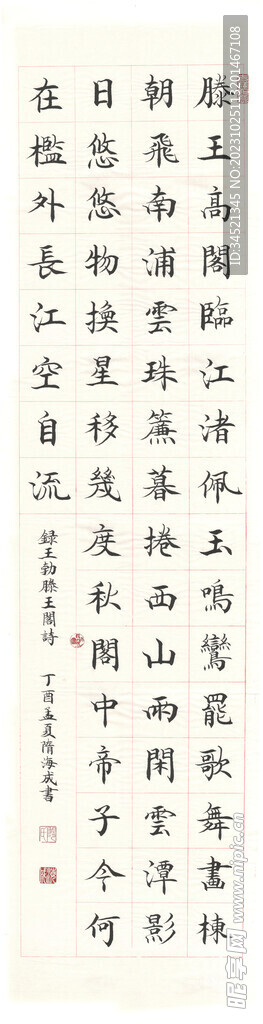 滕王高閣臨江渚佩玉鳴鸞罷歌舞畫棟
朝飛南浦雲珠簾暮捲西山雨閑雲潭影
日悠悠物換星移幾度秋閣中帝子今何
在檻外長江空自流
録王勃滕王閣詩 丁酉孟夏隋海成書
ID:34521345 NO:20231025113201467108
昵享网 www.nipic.cn